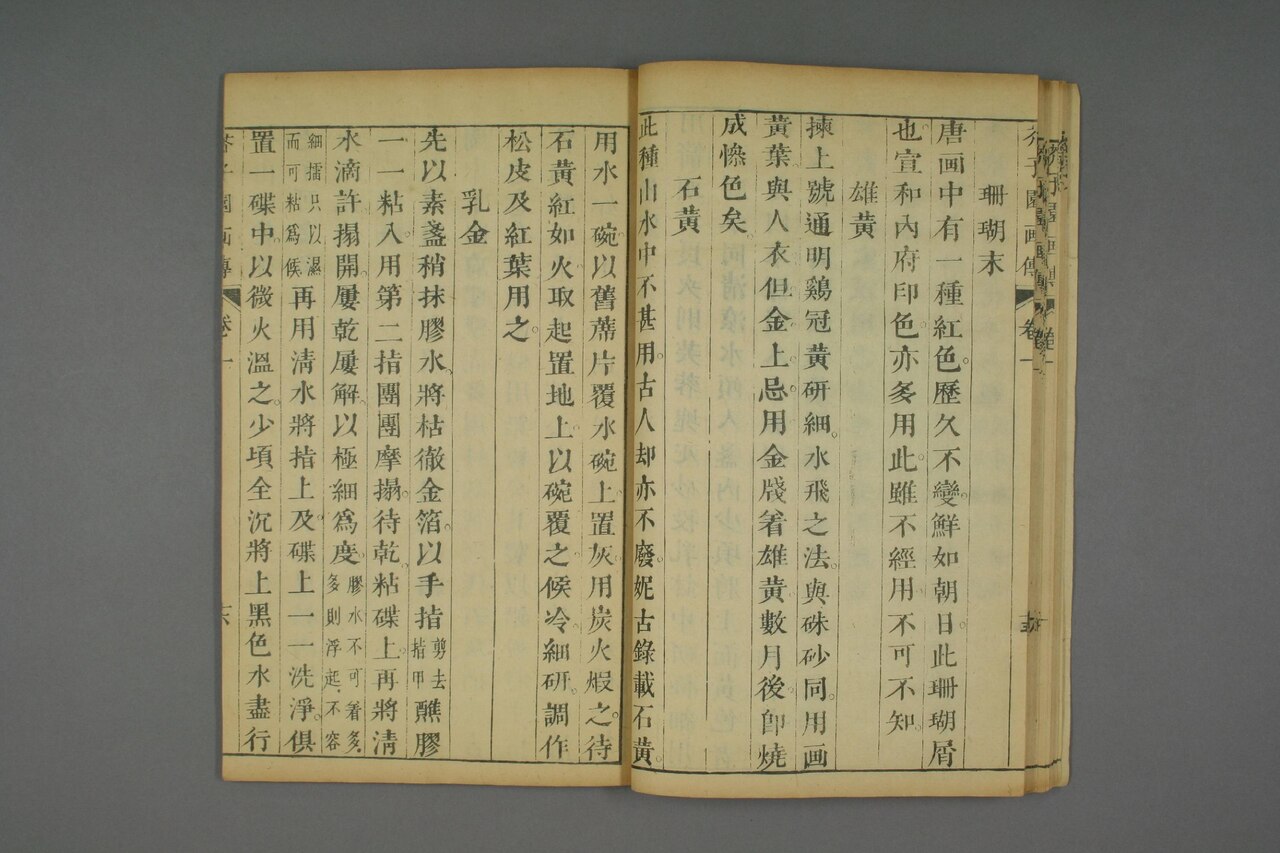 芥子園画傳 卷一
珊瑚末
唐画中有一種紅色。歷久不變鮮如朝日。此珊瑚屑
也。宣和內府印色。亦多用此。雖不經用。不可不知。
雄黃
揀上號通明鷄冠黃研細。水飛之法。與硃砂同。用画
黃葉與人衣。但金上。忌用金牋着雄黃數月後。卽燒
成慘色矣。
石黃
此種山水中不甚用。古人却亦不廢。妮古錄載石黃。
用水一碗。以舊蓆片覆水碗上。置灰用炭火煅之。待
石黃紅如火。取起置地上。以碗覆之。候冷細研。調作
松皮及紅葉用之。
乳金
先以素盞稍抹膠水、將枯徹金箔。以手指剪去指甲蘸膠
一一粘入。用第二指團團摩搨。待乾。粘碟上。再將清
水滴許搨開。屢乾屢解。以極細爲度。膠水不可着多。多則浮起。不容
細擂只以濕而可粘爲候再用清水將指上及碟上一一洗淨。俱
置一碟中。以微火溫之。少頃全沉將上黑色水盡行
芥子園画傳 卷一 十六